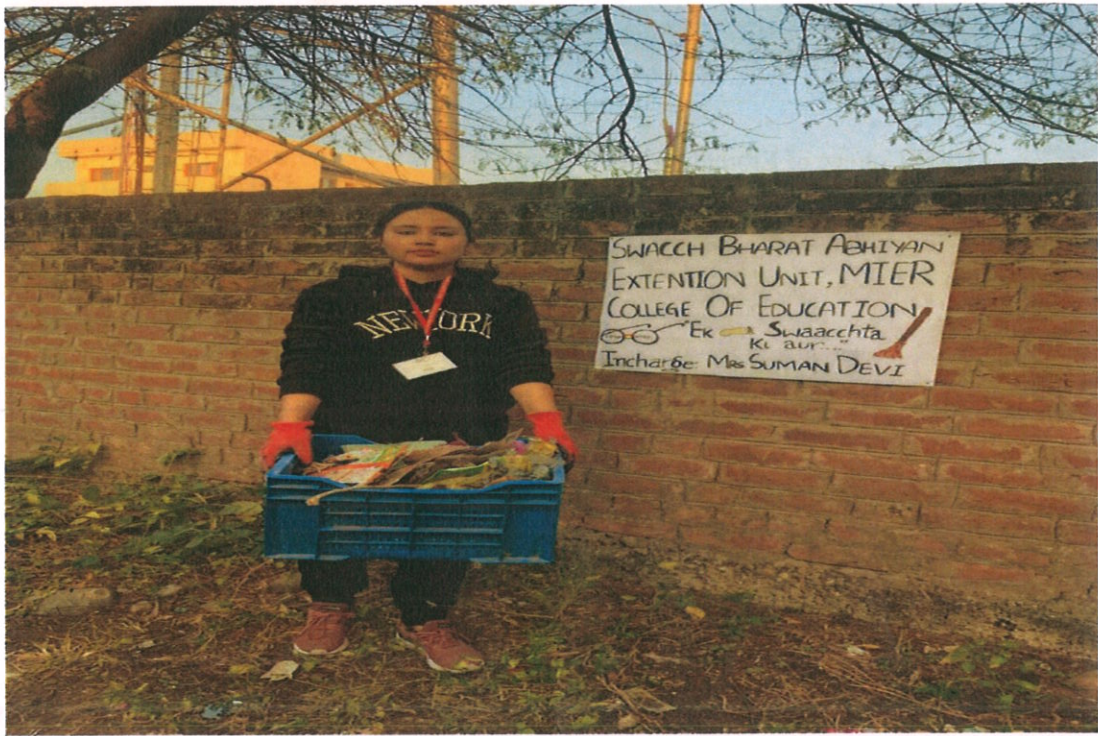 NEW YORK
SWACCH BHARAT ABHIYAN
EXTENTION UNIT, MIER
COLLEGE OF EDUCATION
"Ek Swaacchta
Ki aur..."
Incharge: Mrs SUMAN DEVI